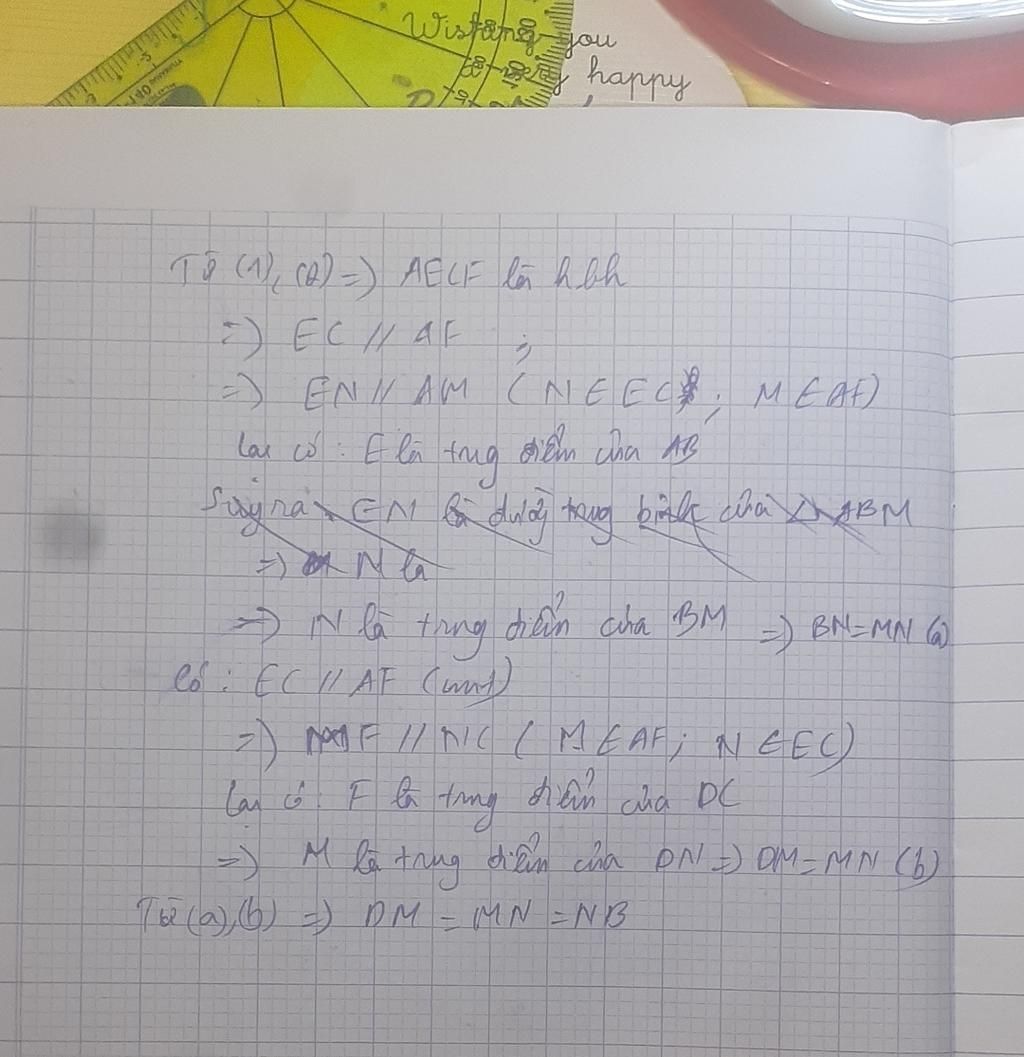 Wishing you
happy
Từ (1), (2) => AECF là hbh
=> EC // AF ;
=> EN // AM ( N ∈ EC ; M ∈ AF)
Lại có : E là trug điểm của AB
Suy ra EN là đường trung bình của △ ABM
=> N là
=> N là trung điểm của BM => BN=MN (a)
Có : EC // AF (cmt)
=> MF // NC ( M ∈ AF; N ∈ EC)
Lại có : F là trung điểm của DC
=> M là trung điểm của DN => DM=MN (b)
Từ (a),(b) => DM = MN = NB